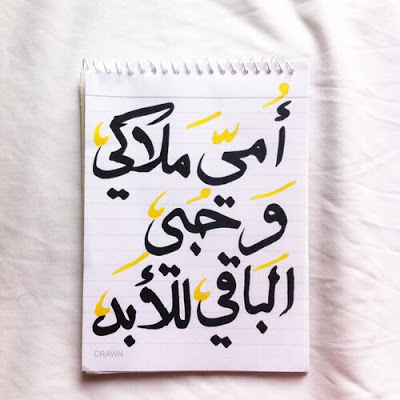 أُميّ مَلاكي
وَ حُبي
البَاقي للأبدَ
CRAWN